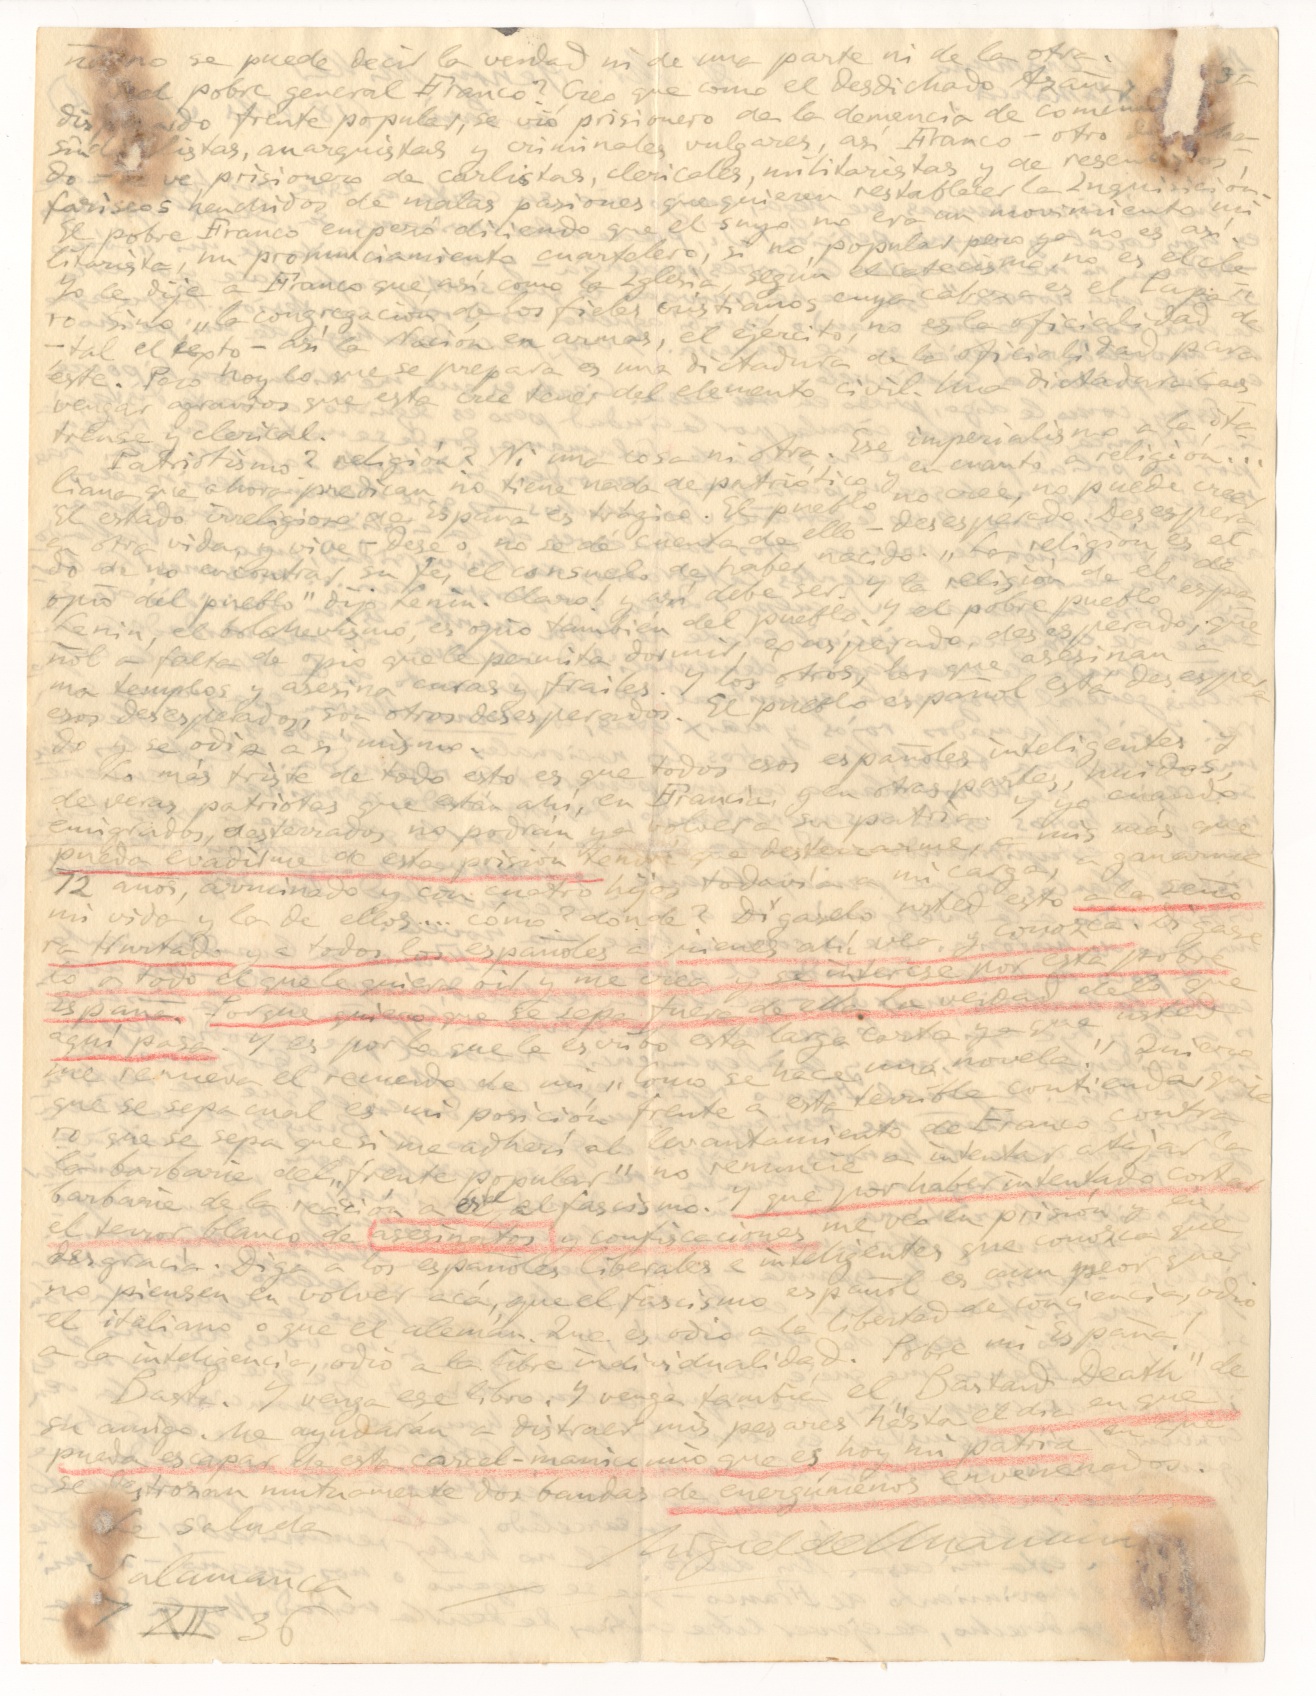 se puede decir la verdad ni de una parte ni de la otra.
el pobre general Franco? Creo que como el desdichado Azaña,
do frente popular, se vió prisionero de la demencia de
listas, anarquistas y criminales vulgares, así Franco – otro
do – se ve prisionero de carlistas, clericales, militaristas y de
fariseos henchidos de malas pasiones que quieren restablecer la Inquisición.
El pobre Franco empezó diciendo que el suyo no era un movimiento mi
litarista, un pronunciamiento cuartelero, si no popular pero ya no es así.
Yo le dije a Franco que, así como la Iglesia, según el catecismo, no es el cle
ro sino „la congregación de los fieles cristianos cuya cabeza es el Papa"
– tal el texto – así la Nación en armas, el ejército, no es la oficialidad de
este. Pero hoy lo que se prepara es una dictadura de la oficialidad para
vengar agravios que esta cree tener del elemento civil. Una dictadura cas
trense y clerical.
Patriotismo? religión? Ni una cosa ni otra. Ese imperialismo a la ita
liana que ahora predican no tiene nada de patriótico y en cuanto a religión...
El estado irreligioso de España es trágico. El pueblo no cree, no puede creer
a otra vida, y vive – dese o no se dé cuenta de ello – desesperado. Desespera
do de no encontrar, sin fe, el consuelo de haber nacido. „La religión es el
opio del pueblo" dijo Lenin. Claro! y así debe ser. Y la religión de el, de
Lenin, el bolchevismo, es opio también del pueblo. Y el pobre pueblo espa
ñol a falta de opio que le permita dormir, exasperado, desesperado, que
ma templos y asesina curas y frailes. Y los otros, los que asesinan a
esos desesperados, son otros desesperados. El pueblo español está desespera
do y se odia a sí mismo.
Lo más triste de todo esto es que todos esos españoles inteligentes y
de veras patriotas que están ahí, en Francia, y en otras partes, huidos,
emigrados, desterrados no podrán ya volver a su patria. Y yo cuando
pueda evadirme de esta prisión tendré que desterrarme, a mis más que
72 años, arruinado y con cuatro hijos todavía a mi carga, a ganarme
mi vida y la de ellos... cómo? dónde? Dígaselo usted esto a la seño
ra Hurtado y a todos los españoles a quienes ahí vea y conozca. Dígase
lo a todo el que le quiera oir y me crea y se interese por esta pobre
España. Porque quiero que se sepa fuera de ella la verdad de lo que
aquí pasa. Y es por lo que le escribo esta larga carta ya que usted
me renueva el recuerdo de mi „Como se hace una novela." Quiero
que se sepa cual es mi posición frente a esta terrible contienda; quie
ro que se sepa que si me adherí al levantamiento de Franco contra
la barbarie del „frente popular" no renuncié a intentar atajar la
barbarie de la reacción a est, el fascismo. Y que por haber intentado cortar
el terror blanco de asesinatos y confiscaciones me veo en prisión y en
desgracia. Diga a los españoles liberales e inteligentes que conozca que
no piensen en volver acá, que el fascismo español es aun peor que
el italiano o que el alemán. Que es odio a la libertad de conciencia, odio
a la inteligencia, odio a la libre individualidad. Pobre mi España!
Basta. Y venga ese libro. Y venga también el „Bastard Death" de
su amigo. Me ayudarán a distraer mis pesares hasta el día en que
pueda escapar de esta carcel-manicomio que es hoy mi patria en que
se destrozan mutuamente dos bandas de energúmenos envenenados.
Le saluda
Miguel de Unamuno
Salamanca
7 XII 36